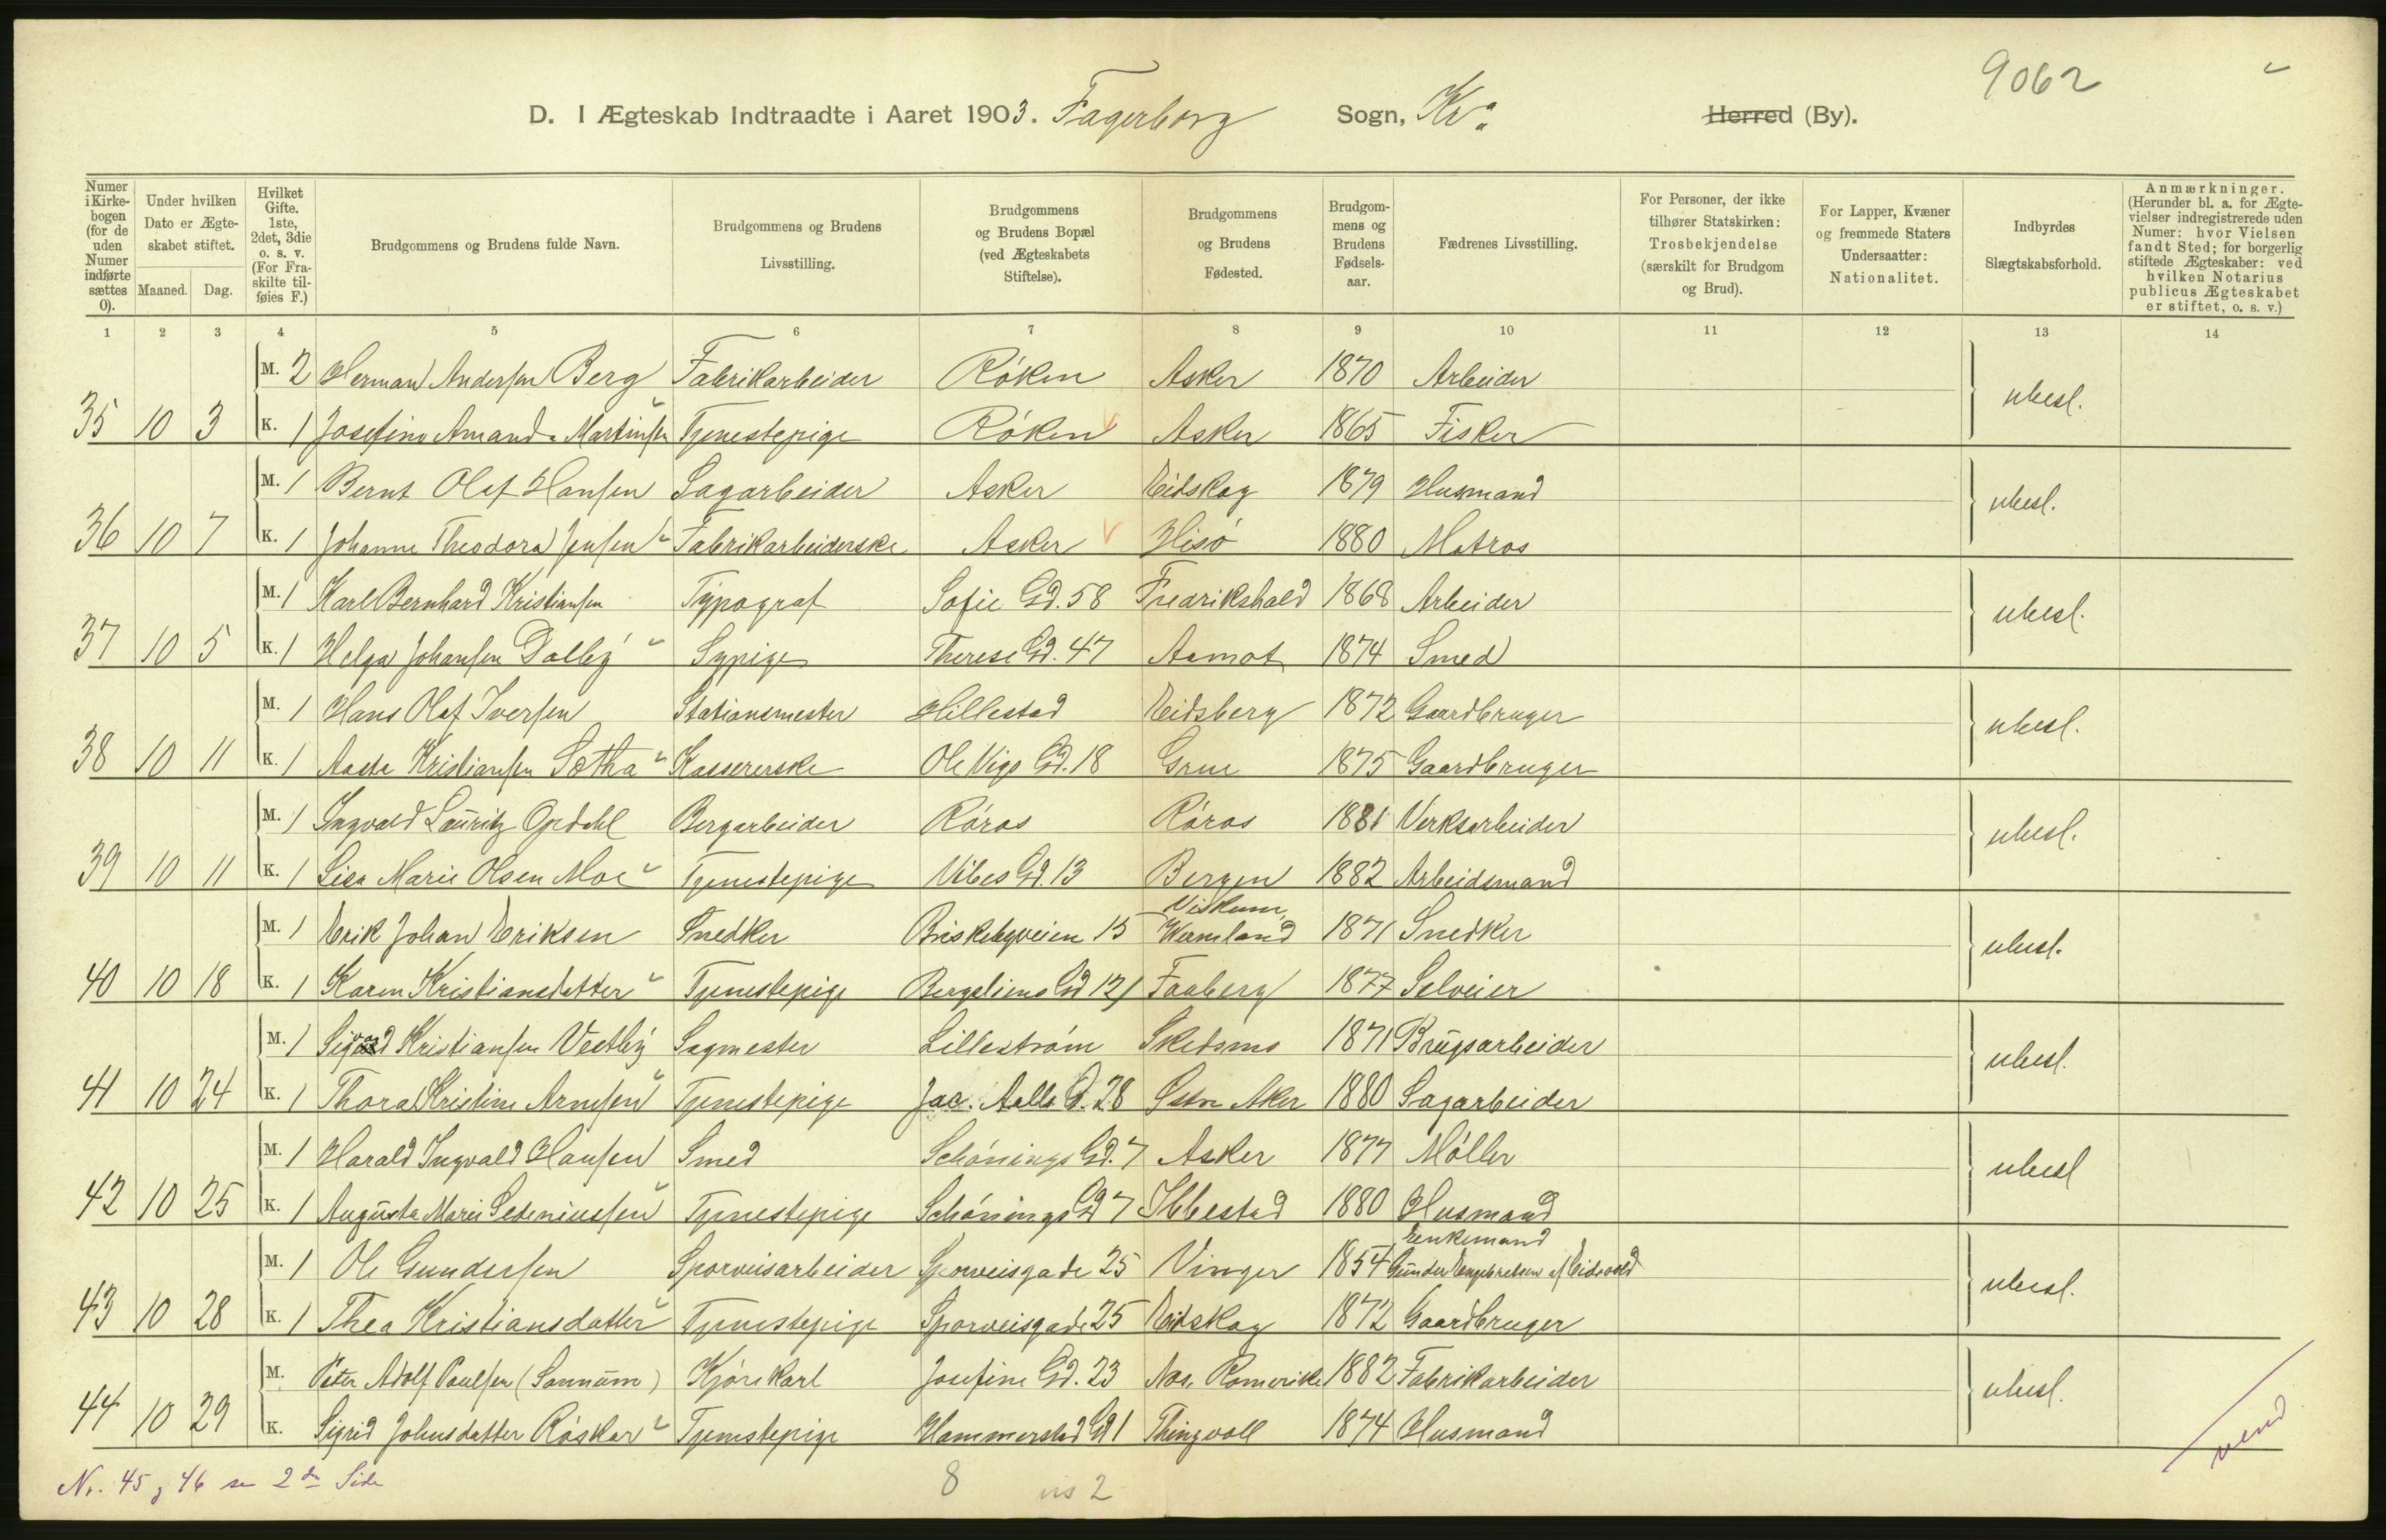 9062
D. I Ægteskab Indtraadte i Aaret 1903. Fagerborg Sogn, Kra Herred (By).
Numer i Kirkebogen (for de uden Numer indførte sættes 0).
Under hvilken Dato er Ægteskabet stiftet. Maaned. Dag.
Hvilket Gifte. 1ste, 2det, 3die o. s. v. (For Fraskilte tilføies F.)
Brudgommens og Brudens fulde Navn.
Brudgommens og Brudens Livsstilling.
Brudgommens og Brudens Bopæl (ved Ægteskabets Stiftelse).
Brudgommens og Brudens Fødested.
Brudgommens og Brudens Fødselsaar.
Fædrenes Livsstilling.
For Personer, der ikke tilhører Statskirken: Trosbekjendelse (særskilt for Brudgom og Brud).
For Lapper, Kvæner og fremmede Staters Undersaatter: Nationalitet.
Indbyrdes Slægtskabsforhold.
Anmærkninger. (Herunder bl. a. for Ægtevielser indregistrerede uden Numer: hvor Vielsen fandt Sted; for borgerlig stiftede Ægteskaber: ved hvilken Notarius publicus Ægteskabet er stiftet, o. s. v.)
1 2 3 4 5 6 7 8 9 10 11 12 13 14
M. 2 Herman Andersen Berg Fabrikarbeider Røken Asker 1870 Arbeider
35 10 3 K. 1 Josefine Amanda Martinsen Tjenestepige Røken Asker 1865 Fisker ubesl.
M. 1 Bernt Olaf Hansen Sagarbeider Asker Eidskog 1879 Husmand
36 10 7 K. 1 Johanne Theodora Jensen Fabrikarbeiderske Asker Hisø 1880 Matros ubesl.
M. 1 Karl Bernhard Kristiansen Typograf Sofie Gd. 58 Fredrikshald 1868 Arbeider
37 10 5 K. 1 Helga Johansen Dalby Sypige Therese Gd. 47 Aamot 1874 Smed ubesl.
M. 1 Hans Olaf Iversen Stationsmester Hillestad Eidsberg 1872 Gaardbruger
38 10 11 K. 1 Aasta Kristiansen Sætha Kassererske Ole Vigs Gd. 18 Grue 1875 Gaardbruger ubesl.
M. 1 Ingvald Lauritz Opdahl Bergarbeider Røros Røros 1881 Verksarbeider
39 10 11 K. 1 Lisa Marie Olsen Moe Tjenestepige Vibes Gd. 13 Bergen 1882 Arbeidsmand ubesl.
M. 1 Erik Johan Eriksen Snedker Briskebyveien 15 Viskum, Wermland 1871 Snedker
40 10 18 K. 1 Karen Kristiansdatter Tjenestepige Bergsliens Gd 12 Faaberg 1877 Selveier ubesl.
M. 1 Sigvard Kristiansen Vestby Sagmester Lillestrøm Skedsmo 1871 Brugsarbeider
41 10 24 K. 1 Thora Kristine Arnesen Tjenestepige Jac. Aalls G. 28 Østre Aker 1880 Sagarbeider ubesl.
M. 1 Harald Ingvald Hansen Smed Schønings Gd. 7 Asker 1877 Møller
42 10 25 K. 1 Augusta Marie Sedeniussen Tjenestepige Schønings Gd 7 Ibbestad 1880 Husmand ubesl
M. 1 Ole Gundersen Sporveisarbeider Sporveisgade 25 Vinger 1854 Enkemand Gunder Engebretsen af Eidsvold
43 10 28 K. 1 Thea Kristiansdatter Tjenestepige Sporveisgade 25 Eidskog 1872 Gaardbruger ubesl.
M. Peter Adolf Paulsen (Sannum) Kjørekarl Josefine Gd. 23 Nes, Romerike 1882 Fabrikarbeider
44 10 29 K. Sigrid Johnsdatter Røskar Tjenestepige Hammerstad Gd 1 Thingvoll 1874 Husmand ubesl.
vend
Nr. 45 og 46 se 2den Side
8 2